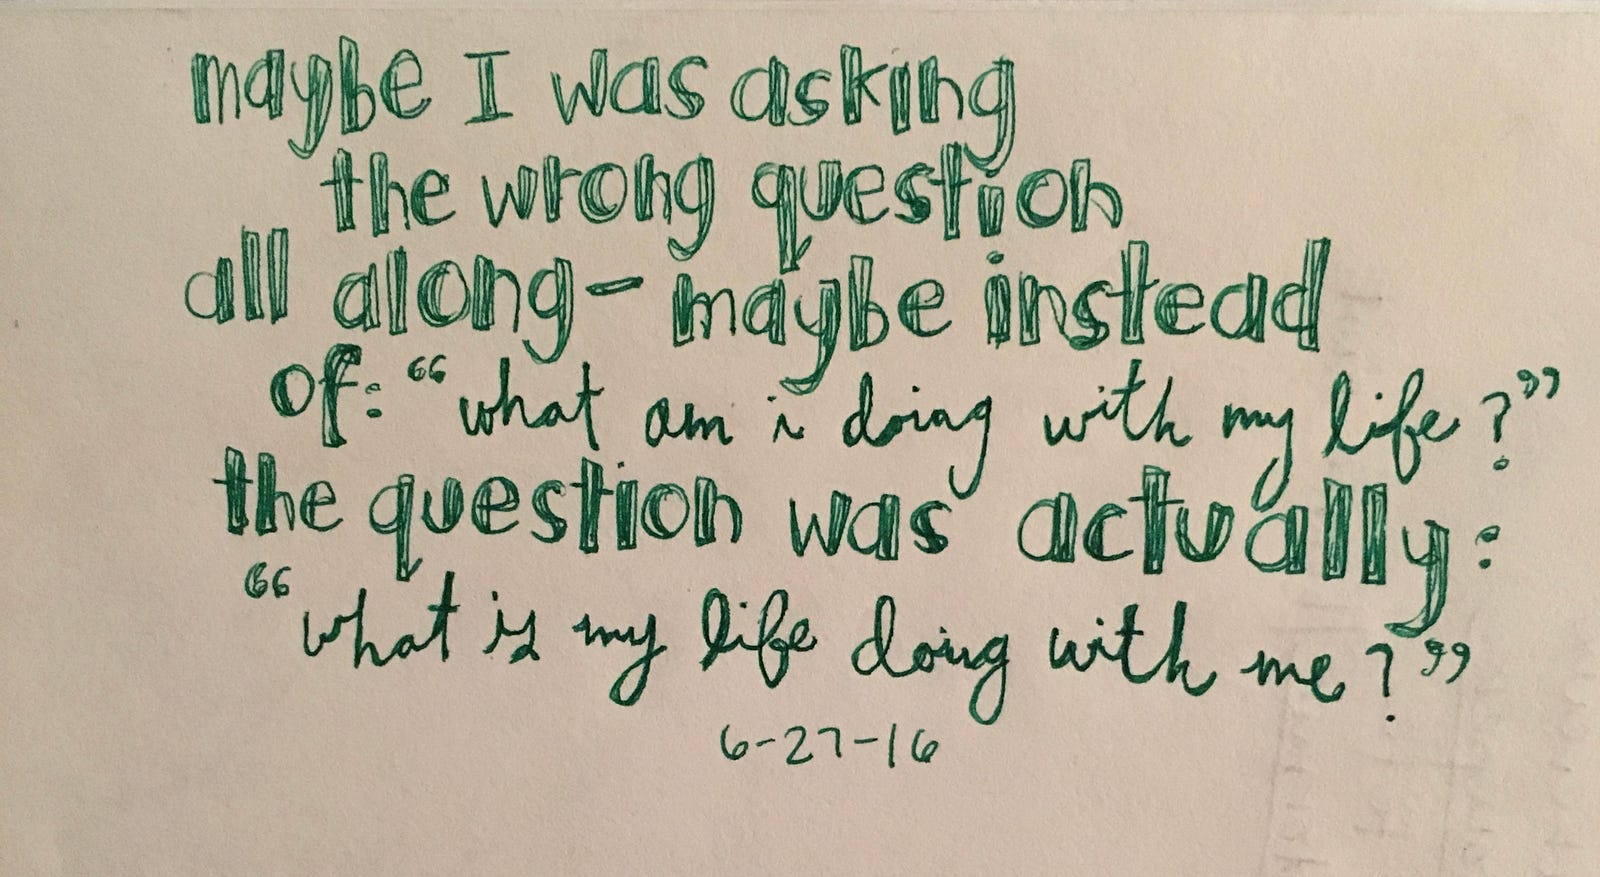 maybe I was asking
the wrong question
all along - maybe instead
of: "what am i doing with my life?"
the question was actually:
"what is my life doing with me?"
6-27-16